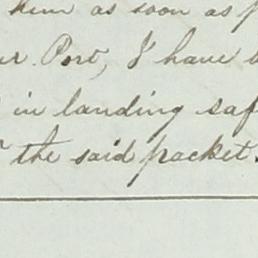 him as soon as
Port, I have
in landing saf
the said packet.